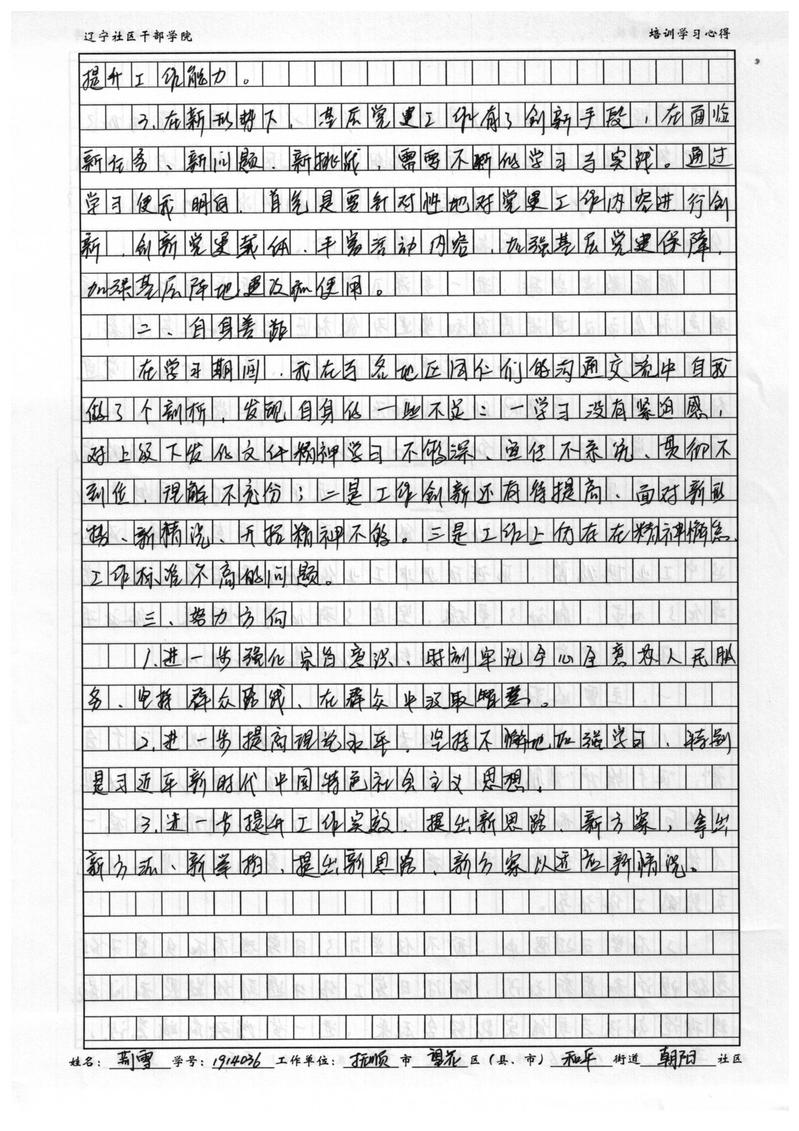 辽宁社区干部学院 培训学习心得
提升工作能力。
3.在新形势下，基层党建工作有了创新手段，在面临
新任务、新问题、新挑战，需要不断的学习与实践。通过
学习使我明白，首先是要针对性地对党建工作内容进行创
新，创新党建载体、丰富活动内容，加强基层党建保障，
加强基层阵地建设和使用。
二、自身差距
在学习期间，我在与各地区同仁们的沟通交流中自我
做了个剖析，发现自身的一些不足：一学习没有紧迫感，
对上级下发的文件精神学习不够深，宣传不系统、贯彻不
到位，理解不充份；二是工作创新还有待提高、面对新形
势、新情况、开拓精神不够。三是工作上仍存在精神懈怠，
工作标准不高的问题。
三、努力方向
1.进一步强化宗旨意识，时刻牢记全心全意为人民服
务、坚持群众路线、在群众中汲取智慧。
2.进一步提高理论水平，坚持不懈地加强学习，特别
是习近平新时代中国特色社会主义思想，
3.进一步提升工作实效，提出新思路 新方案，拿出
新方法、新举措，提出新思路，新方案以适应新情况。
姓名：荆雪 学号：1914036 工作单位：抚顺 市 望花 区（县、市） 和平 街道 朝阳 社区